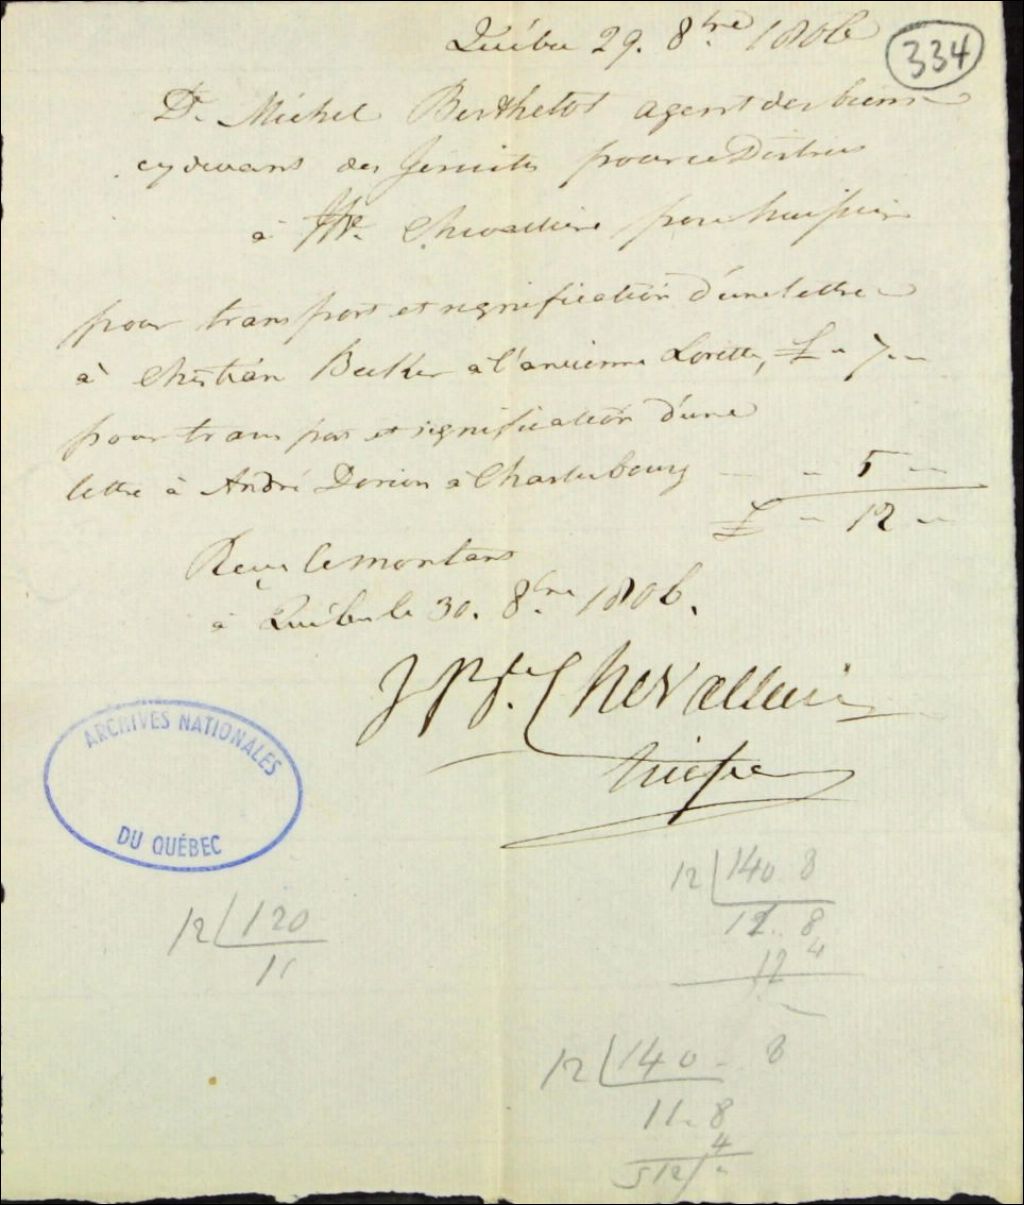 Québec 29. 8.bre 1806
334
Dr. Michel Berthelot agent des biens
cy devant des Jesuites pour ce District
à Chevallier pour huissier
pour transport et signification d'une lettre
à Christian Becker à l'ancienne Lorette, £ " 7. "
pour transport et signification d'une
lettre à André Dorion à Charlesbourg — " 5 "
£ " 12 "
Reçu le montant
à Québec le 30. 8.bre 1806.
JBte. Chevallier
huissier
ARCHIVES NATIONALES
DU QUÉBEC
12 140 8
11. 8
4
12
12 120
12 140. 8
11. 8
4